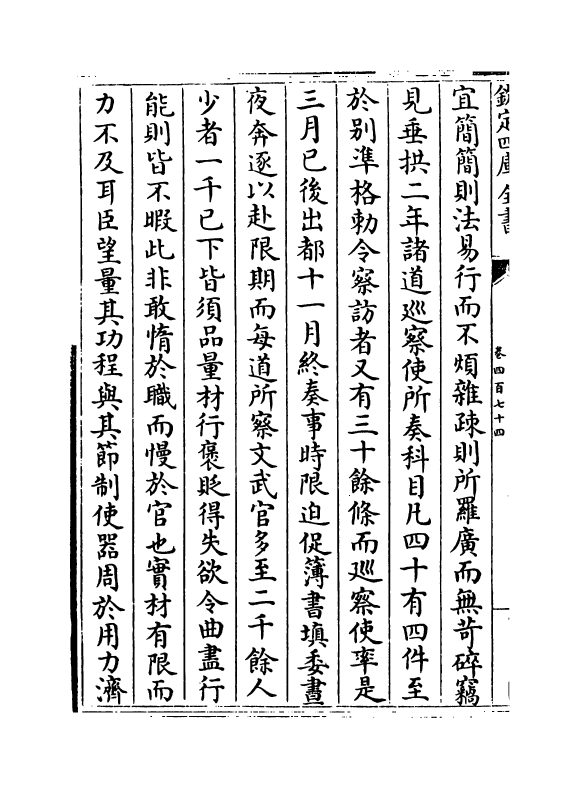 欽定四庫全書
卷四百七十四
宜簡簡則法易行而不煩雜疎則所羅廣而無苛碎竊
見垂拱二年諸道廵察使所奏科目凡四十有四件至
於别準格勅令察訪者又有三十餘條而廵察使率是
三月已後出都十一月終奏事時限迫促簿書填委晝
夜奔逐以赴限期而每道所察文武官多至二千餘人
少者一千已下皆須品量材行褒貶得失欲令曲盡行
能則皆不暇此非敢惰於職而慢於官也實材有限而
力不及耳臣望量其功程與其節制使器周於用力濟